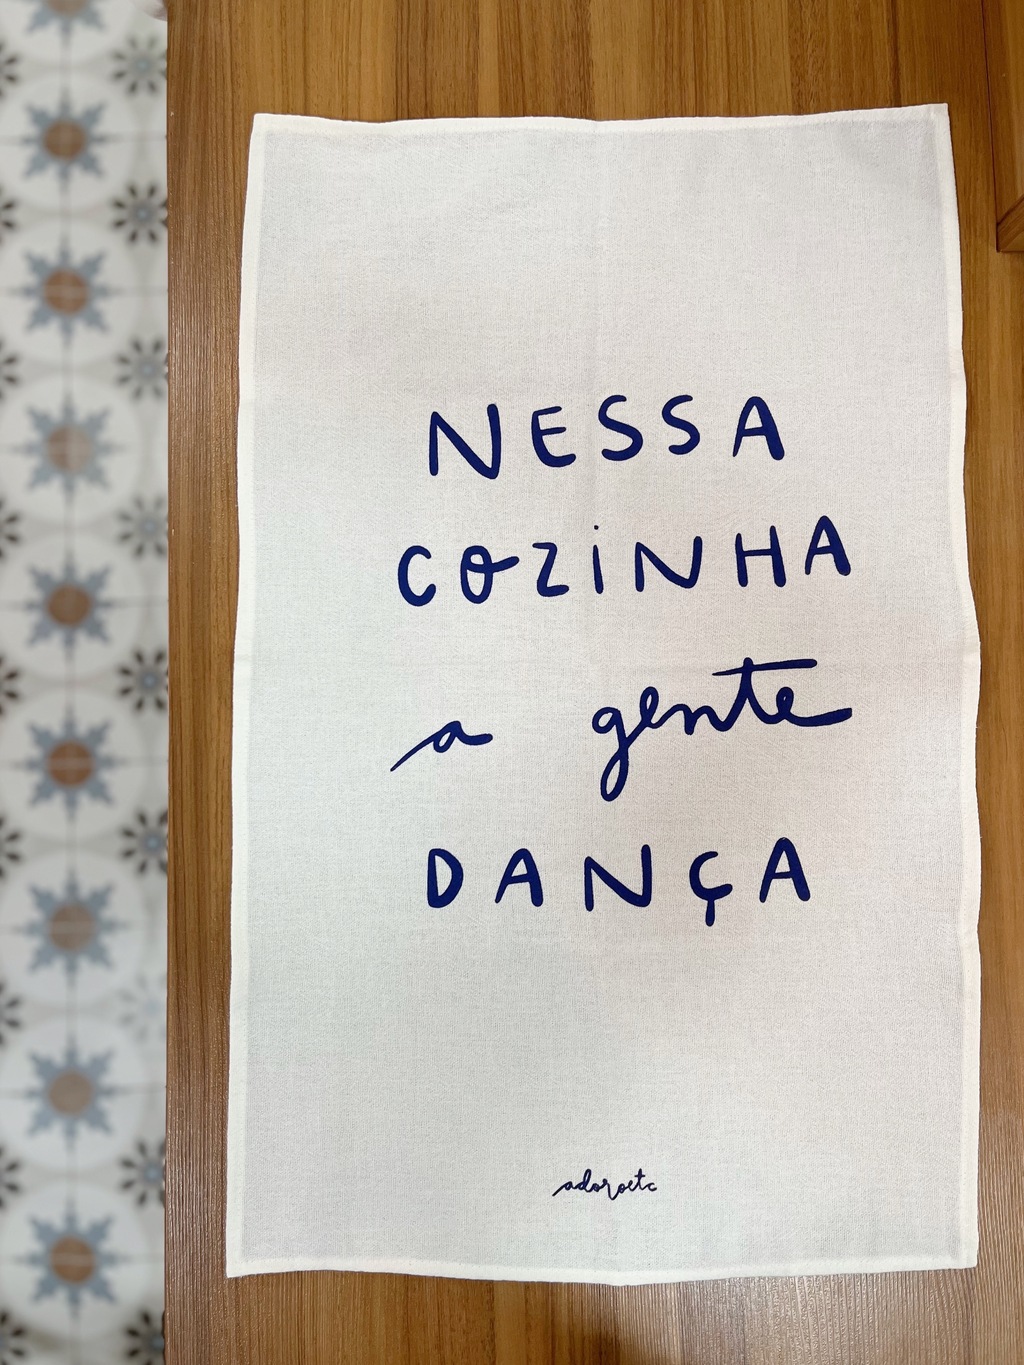 NESSA
COZiNHA
a gente
DANÇA
adoroetc